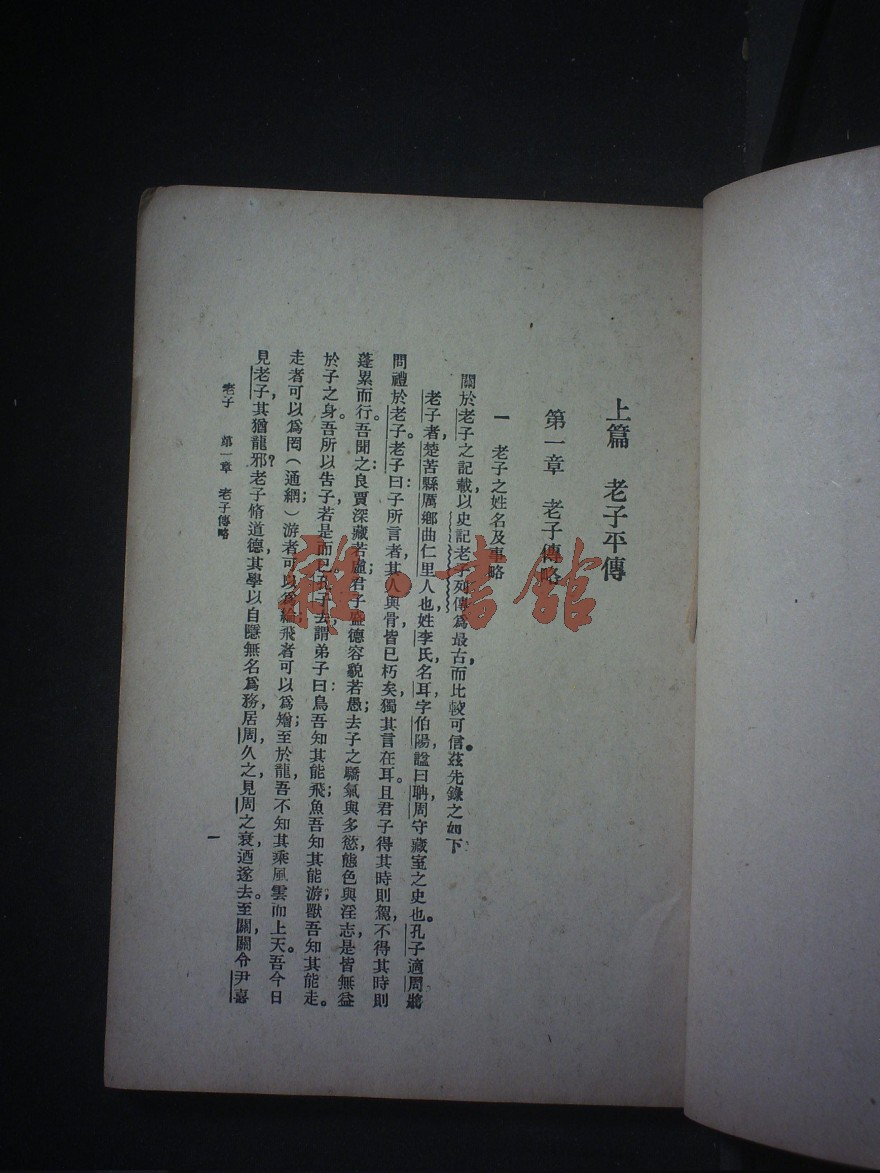 上篇　老子平傳
第一章　老子傳略
一　老子之姓名及事略
關於老子之記載，以史記老子列傳爲最古，而比較可信。茲先錄之如下
老子者，楚苦縣厲鄉曲仁里人也，姓李氏，名耳，字伯陽，諡曰聃，周守藏室之史也。孔子適周，將
問禮於老子。老子曰：子所言者，其人與骨皆已朽矣，獨其言在耳。且君子得其時則駕，不得其時則
蓬累而行。吾聞之：良賈深藏若虛，君子盛德容貌若愚。去子之驕氣與多慾，態色與淫志，是皆無益
於子之身。吾所以告子，若是而已。孔子去，謂弟子曰：鳥，吾知其能飛；魚，吾知其能游；獸，吾知其能走。
走者可以爲罔（通網）；游者可以爲綸；飛者可以爲矰；至於龍，吾不知其乘風雲而上天。吾今日
見老子，其猶龍邪？老子脩道德，其學以自隱無名爲務，居周，久之，見周之衰，迺遂去。至關，關令尹喜
老子　第一章　老子傳略
一
雜·書館